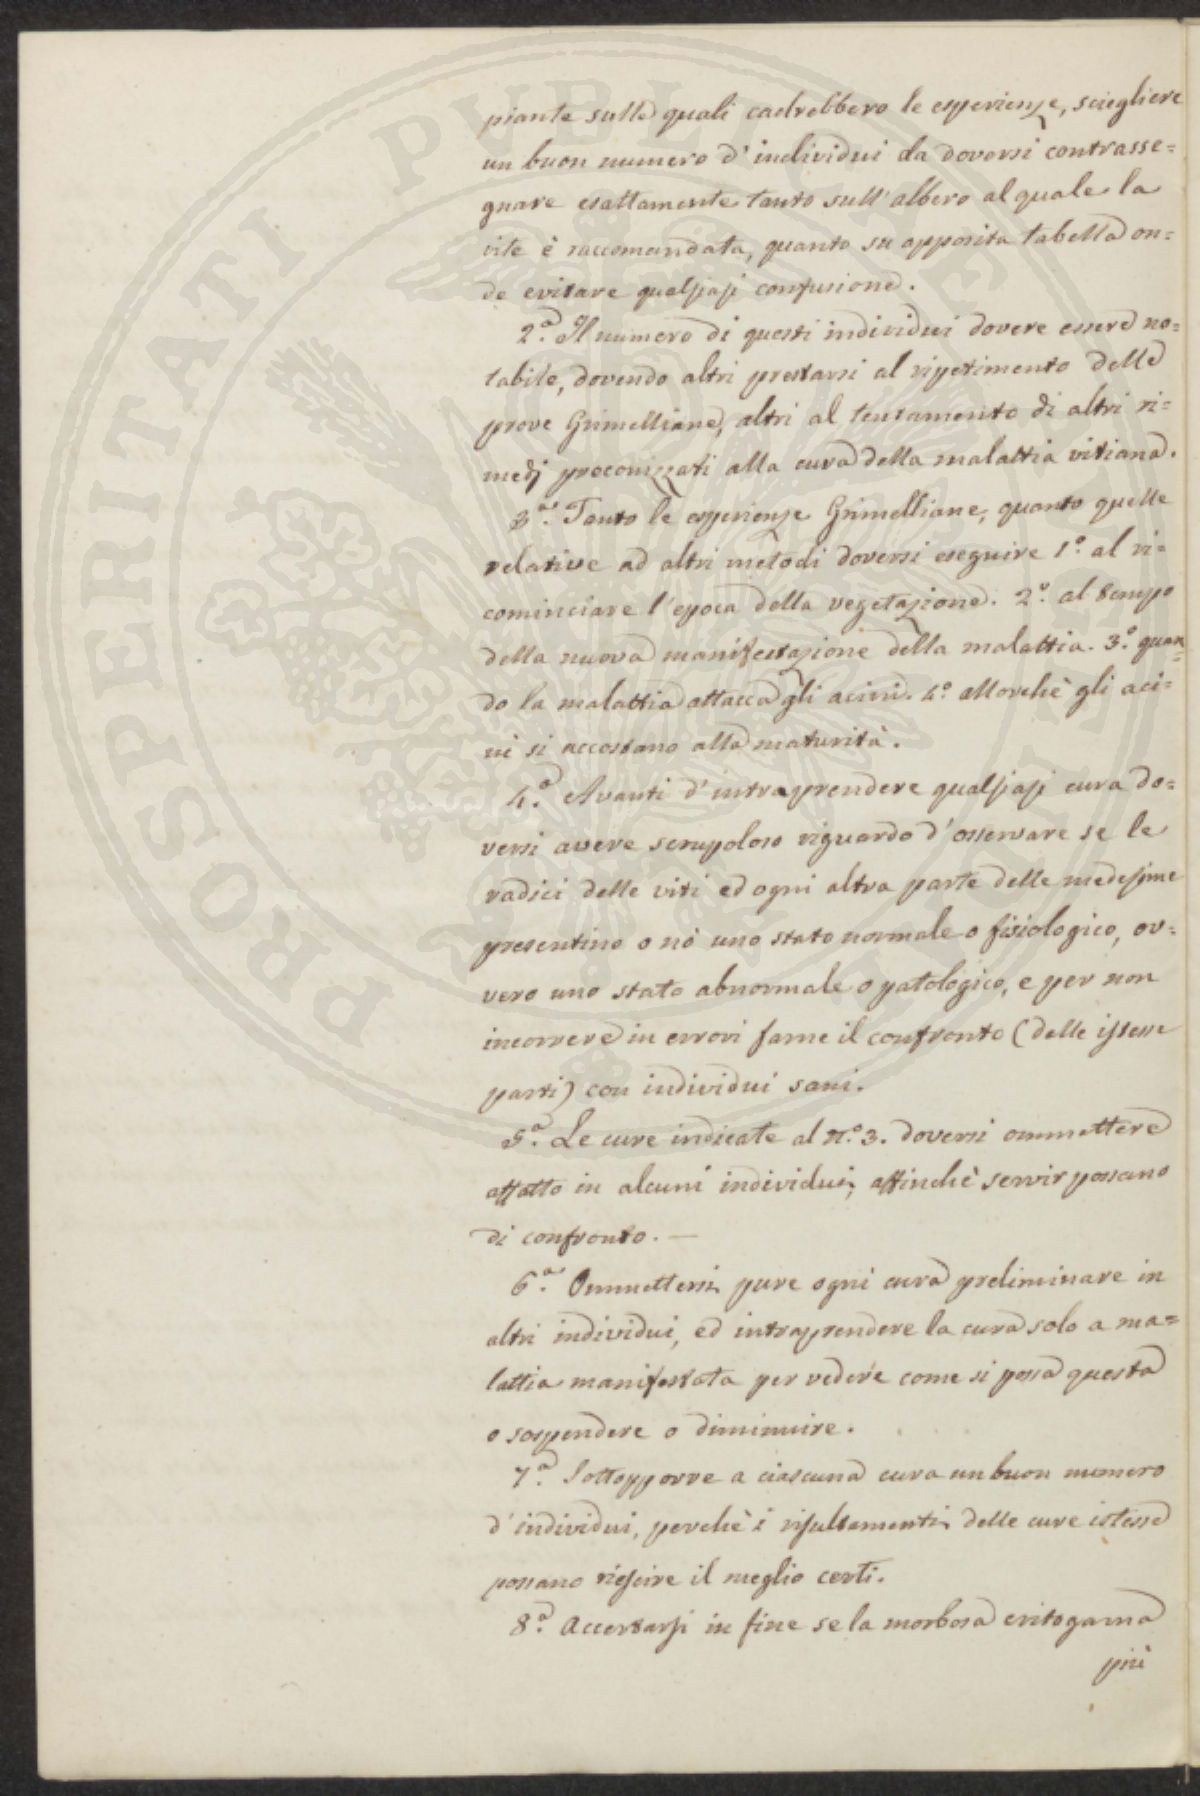 piante sulle quali cadrebbero le esperienze, sciegliere
un buon numero d'individui da doversi contrasse=
gnare esattamente tanto sull'albero al quale la
vite è raccomandata, quanto su apposita tabella on=
de evitare qualsiasi confusione.
2.a Il numero di questi individui dovere essere no=
tabile, dovendo altri prestarsi al ripetimento delle
prove Grimelliane, altri al tentamento di altri ri=
medj preconizzati alla cura della malattia vitiana.
3.a Tanto le esperienze Grimelliane, quanto quelle
relative ad altri metodi doversi eseguire 1.o al ri=
cominciare l'epoca della vegetazione. 2.o al tempo
della nuova manifestazione della malattia. 3.o quan=
do la malattia attacca gli acini. 4.o allorchè gli aci=
ni si accostano alla maturità.
4.a Avanti d'intraprendere qualsiasi cura do=
versi avere scrupoloso riguardo d'osservare se le
radici delle viti ed ogni altra parte delle medesime
presentino o nò uno stato normale o fisiologico, ov=
vero uno stato abnormale o patologico, e per non
incorrere in errori farne il confronto (delle istesse
parti) con individui sani.
5.a Le cure indicate al n.o 3. doversi ommettere
affatto in alcuni individui, affinchè servir possano
di confronto. —
6.a Ommettersi pure ogni cura preliminare in
altri individui, ed intraprendere la cura solo a ma=
lattia manifestata per vedere come si possa questa
o sospendere o diminuire.
7.a Sottopporre a ciascuna cura un buon numero
d'individui, perchè i risultamenti delle cure istesse
possano riescire il meglio certi.
8.a Accertarsi in fine se la morbosa critogama
più
PROSPERITATI PVBLICAE AVGENDAE